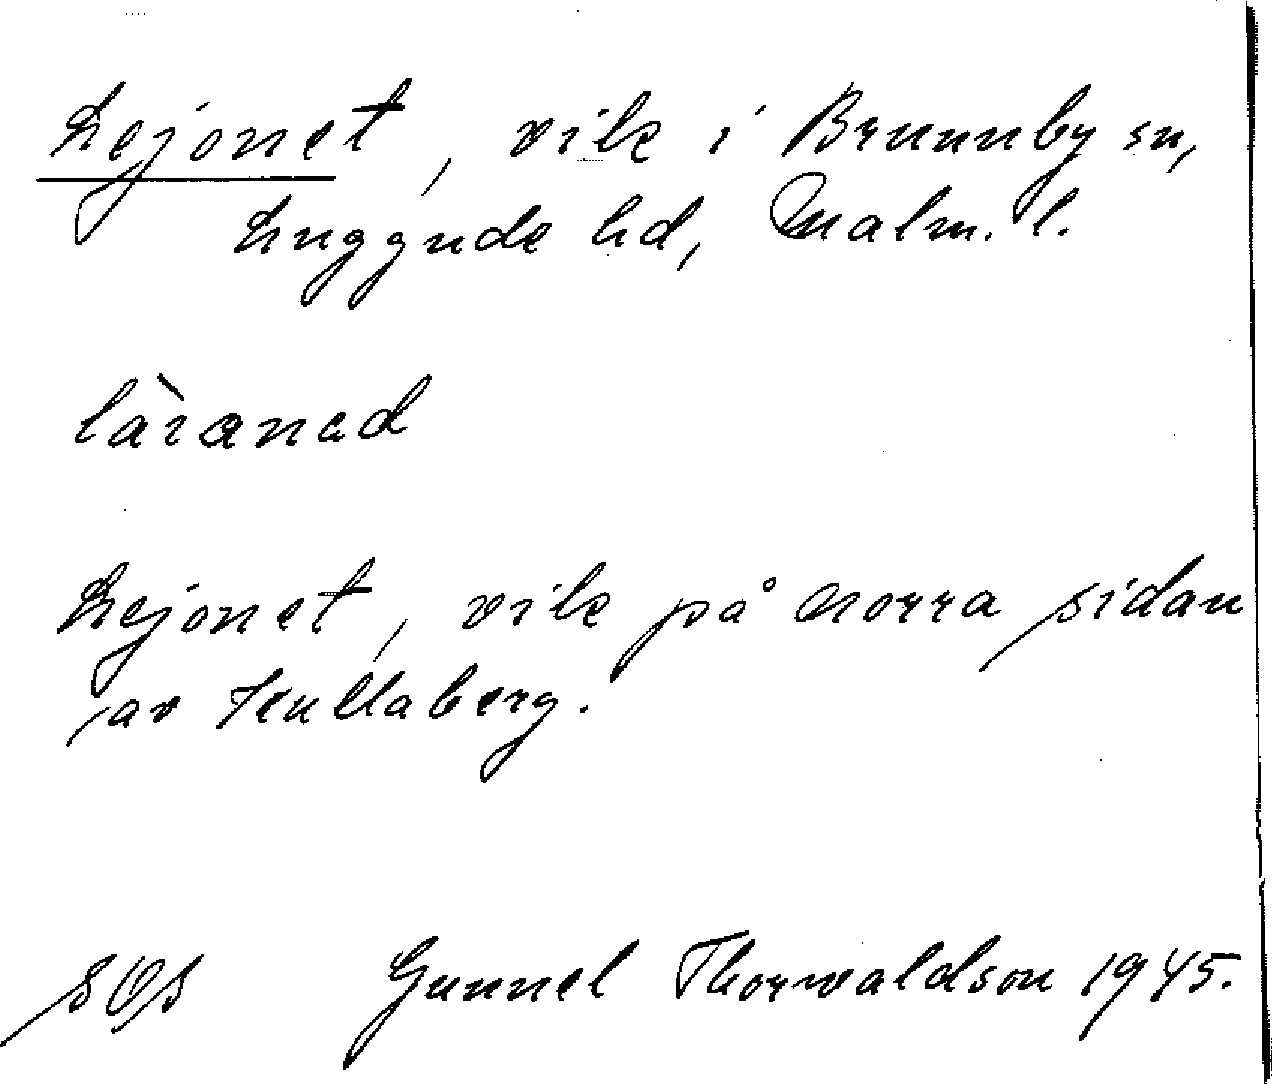 Lejonet, vik i Brunnby sn,
Luggude hd, Malm. l.
làianad
Lejonet, vik på norra sidan
av Kullaberg.
SOS Gunnel Thorwaldson 1945.